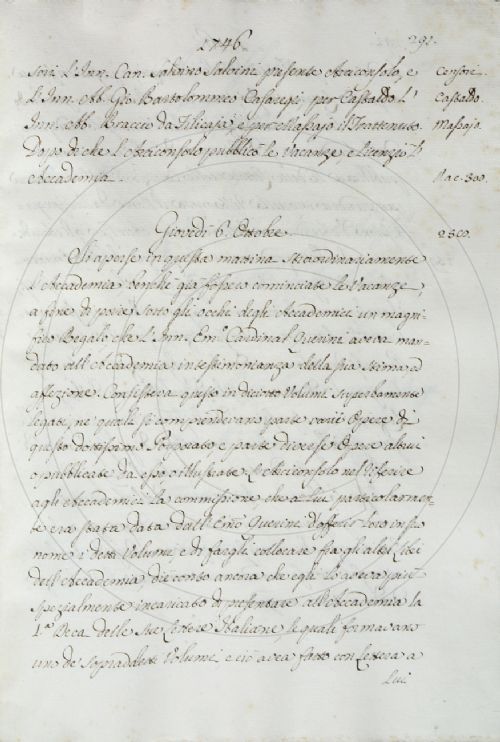 1746
292.
sori L'Inn. Can. Salvino Salvini presente Arciconsolo, e
Censore.
L'Inn. Abb. Gio. Bartolommeo Casaregi, per Castaldo L'
Castaldo.
Inn. Abb. Braccio da Filicaja, e per Massajo il Trattenuto.
Massajo.
Dopo di che L'Arciconsolo pubblicò le Vacanze e licenziò l'
Accademia.
Vac. 300.
Giovedì 6. Ottobre.
2300.
Si aperse in questa mattina straordinariamente
l'Accademia benchè già fossero cominciate le Vacanze,
a fine di porre sotto gli occhi degli Accademici un magni-
fico Regalo che L'Inn. Em.º Cardinal Querini aveva man-
dato all'Accademia in testimonianza della sua stima ed
affezione. Consisteva questo in diciotto Volumi superbamente
legati, ne' quali si comprendevano parte varie Opere di
questo dottissimo Porporato e parte diverse Opere altrui
o pubblicate da esso o illustrate. L'Arciconsolo nel riferire
agli Accademici la commissione che a Lui particolarmen-
te era stata data dall'Emo Querini d'offerir loro in suo
nome i detti Volumi, e di fargli collocare fra gli altri Libri
dell'Accademia die conto ancora che egli lo aveva più
spezialmente incaricato di presentare all'Accademia la
1.ª Deca delle sue Lettere Italiane le quali formavano
uno de' sopraddetti Volumi, e ciò avea fatto con lettera a
Lui